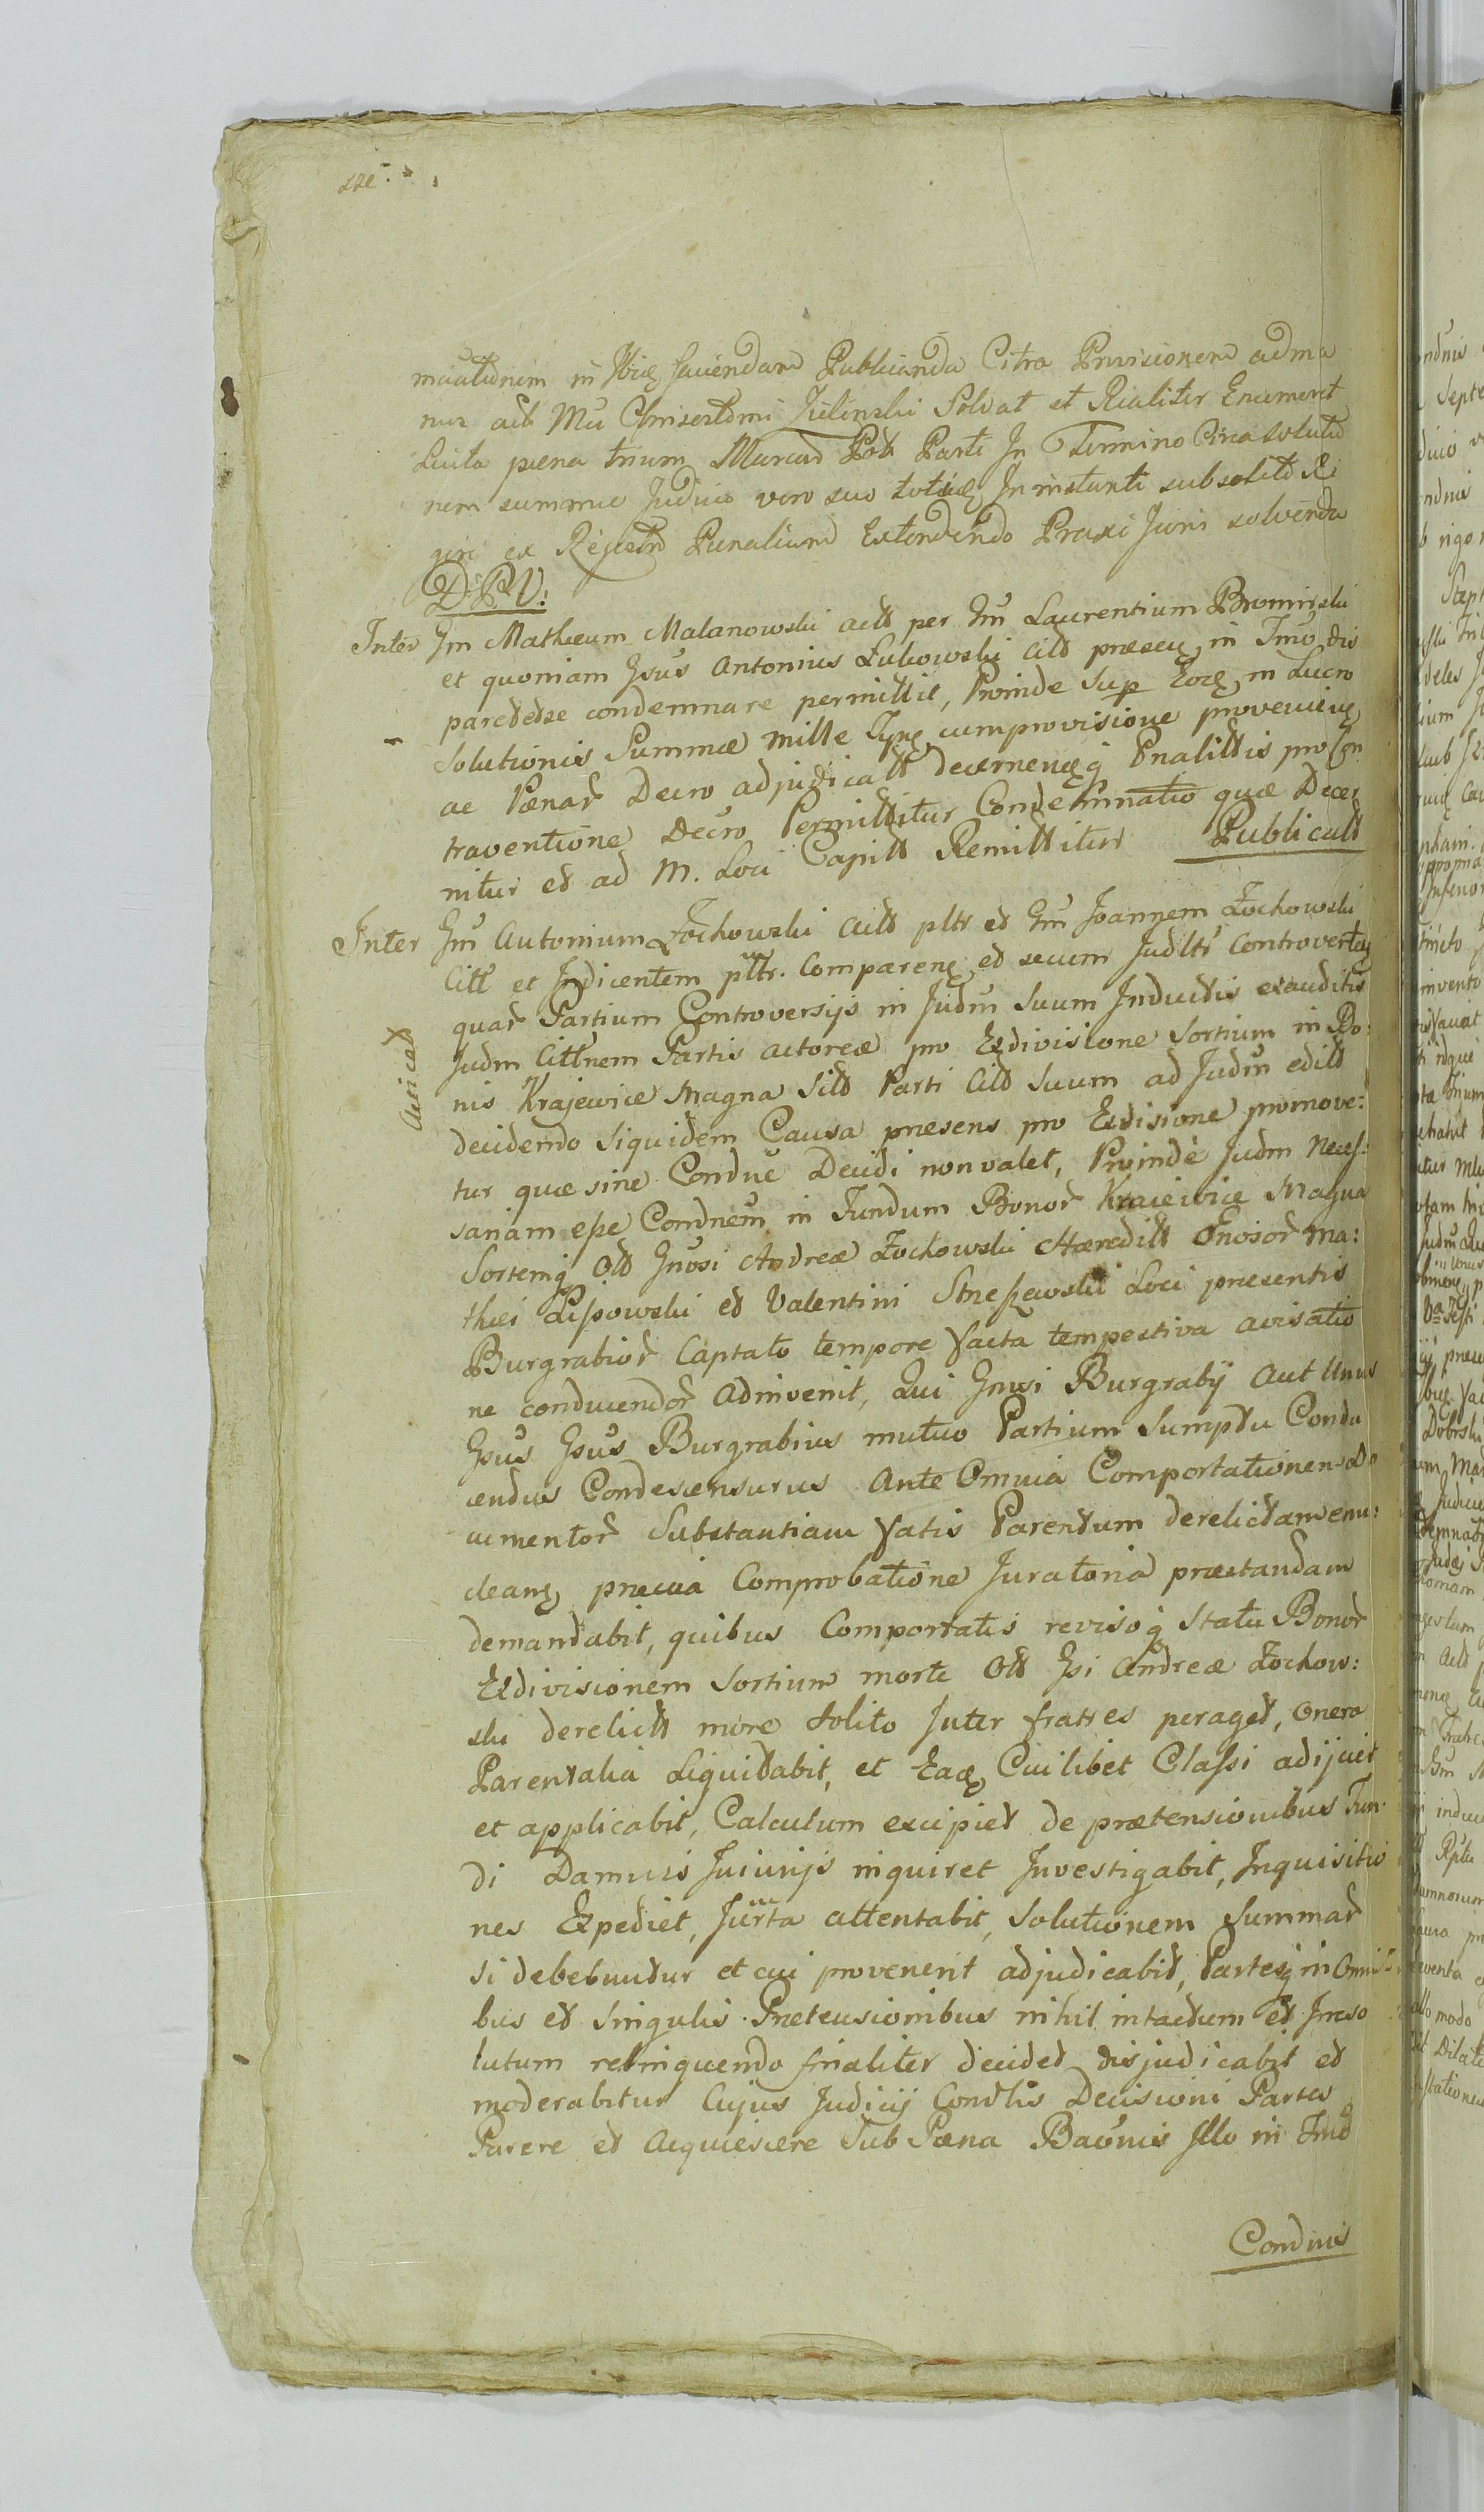 mãatidnem in Ibięs faciendam Publicanda Citra Provisionem adma
nus actt Mci Chrisostomi Zielinski Solvat et Realiter Enumeret
Luita pæna trium Marcar Ptt Parti In Termino Circa Solutio
nem summæ Judicio vero suo totięs In instanti sub solito Ri
gore ex Regestro Pœnalium Extendendo Praxi Juris solvenda
D: P: V:
Inter Gm Matheum Malanowski actt per Gm Laurentium Bromirski
et quoniam Gsus Antonius Zukowski citt præseñ in Tmo dis
parettse condemnare permittit, Proinde Sup Eoę in Lucro
Solutionis Summæ mille Tynę cum provisione provenienę
ac Pœnar Decro adjudicatt decernenęq Pnalittis pro Con
traventione Decro Permittitur Condemnatio quæ Decer
nitur et ad M. Loci Capitt Remittitur Publicatt
Inter Gm Antonium Zochowski actt pltr et Gm Joannem Zochowski
Citt et Indicentem pltr. Comparenę et secum Judltr Controverteñ
quar Partium Controversijs in Judm Suum Inductis exauditis
Judm Cittnem Partis actoreæ pro Exdivisione Sortium in Bo:
nis Krajewice Magna Sitt Parti Citt Suum ad Judm editt
decidendo Siquidem Causa præsens pro Exdisione promove:
tur quæ sine Condne Decidi non valet, Proindè Judm Neceſ:
sariam eſse Condnem in Fundum Bonor Kraiewice Magna
Sortemq Ott Gnosi Andreæ Zochowski Hæreditt Gnosor Ma:
thei Lipowski et Valentini Strzeſzewski Loci præsentis
Burgrabior Captato tempore facta tempestiva avisatio
ne conducendor Adinvenit, Qui Gnosi Burgrabÿ Aut Unus
Gsus Gsus Burgrabius mutuo Partium Sumptu Condu
cendus Condescensurus Ante Omnia Comportationem Do
cumentor Substantiam fatis Parentum derelictam enu:
cleanę præcia Comprobatione Juratoria præstandam
demandabit, quibus Comportatis revisoq Statu Bonor
Exdivisionem Sortium morte Ott Gsi Andreæ Zochow:
ski derelictt more Solito Inter fratres peraget, Onera
Parentalia Liquidabit, et Eaę Cuilibet Claſsi adijciet
et applicabit, Calculum excipiet de prætensionibus Fun
di Damnis Injurijs inquiret Investigabit, Inquisitio
nes Expediet, Jurta attentabit, Solutionem Summar
si debebuntur et cui provenerit adjudicabit, Partesq in Omni
bus et Singulis Prætensionibus nihil intactum et Irreso
lutum relinquendo finaliter decidet disjudicabit et
moderabitur Cujus Judicij Condlis Decisioni Partes
Parere et Acquiescere Sub Pæna Baonis Illo in Tmo
Condnis